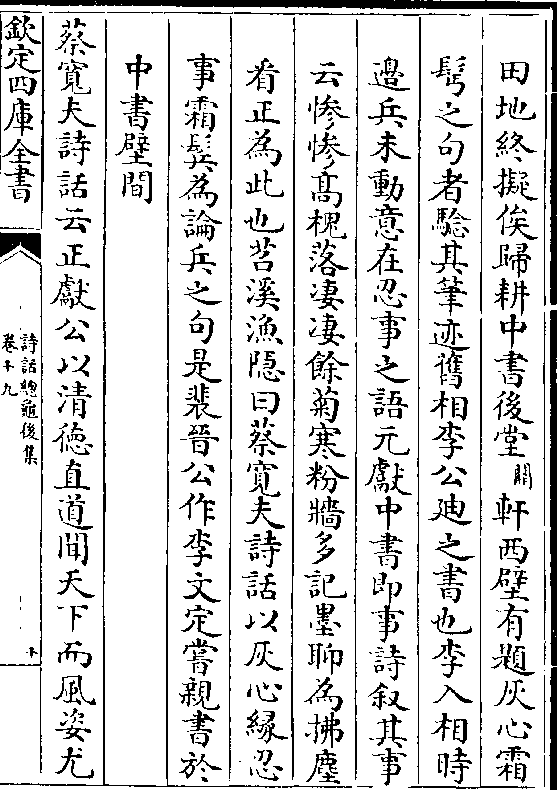 田地終擬俟歸耕中書後堂闗軒西壁有題灰心霜
髩之句者驗其筆迹舊相李公廸之書也李入相時
邉兵未動意在忍事之語元獻中書即事詩叙其事
云惨惨髙槐落凄凄餘菊寒粉牆多記墨聊為拂塵
看正為此也苕溪漁隠曰蔡寛夫詩話以灰心緣忍
事霜髩為論兵之句是裴晉公作李文定嘗親書於
中書壁間
蔡寛夫詩話云正獻公以清徳直道聞天下而風姿尤
欽定四庫全書
詩話總龜後集
卷十九